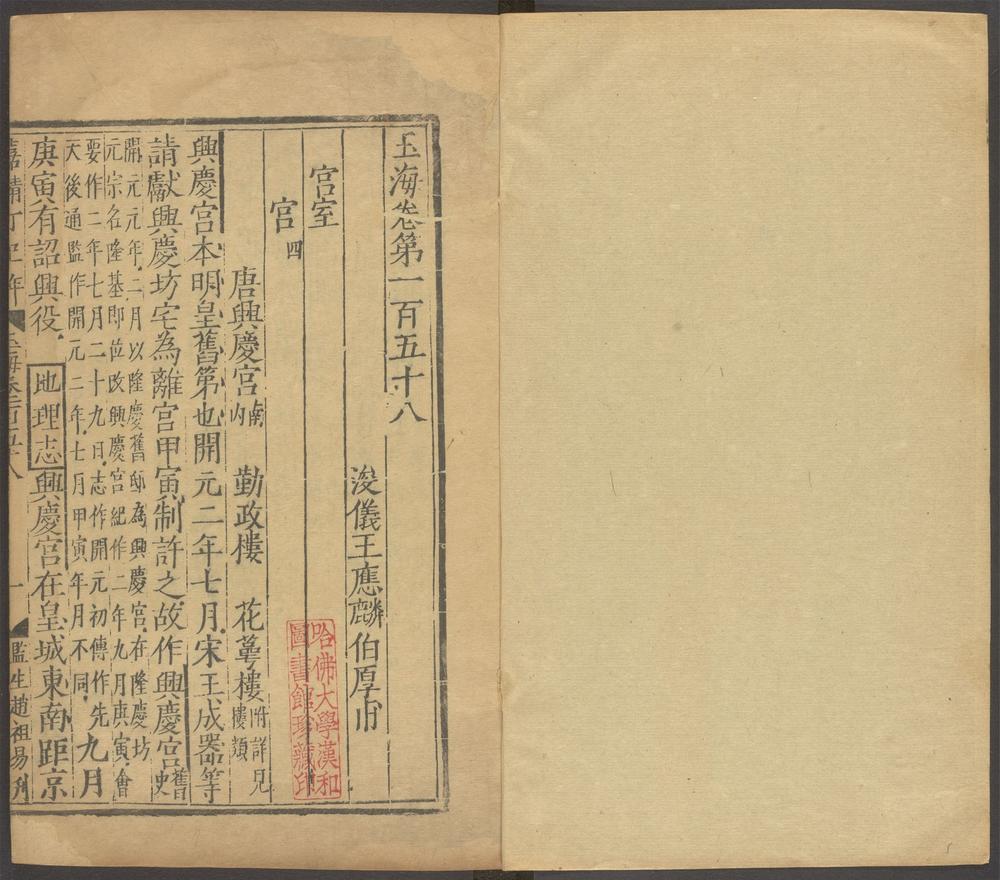 玉海卷第一百五十八
浚儀王應麟伯厚甫
宮室
宮四
唐興慶宮南内 勤政樓 花萼樓附詳見樓類
興慶宮本明皇舊第也開元二年七月宋王成器等
請獻興慶坊宅為離宮甲寅制許之故作興慶宮舊史
開元元年二月以隆慶舊邸為興慶宮在隆慶坊
元宗名隆基即位改興慶宮紀作二年九月庚寅會
要作二年七月二十九日志作開元初傳作先
天後通監作開元二年七月甲寅年月不同九月
庚寅有詔興役地理志興慶宮在皇城東南距京
嘉靖丁巳年 玉海卷一百五十八 一 監生趙祖易刋
哈佛大學漢和
圖書館珍藏印